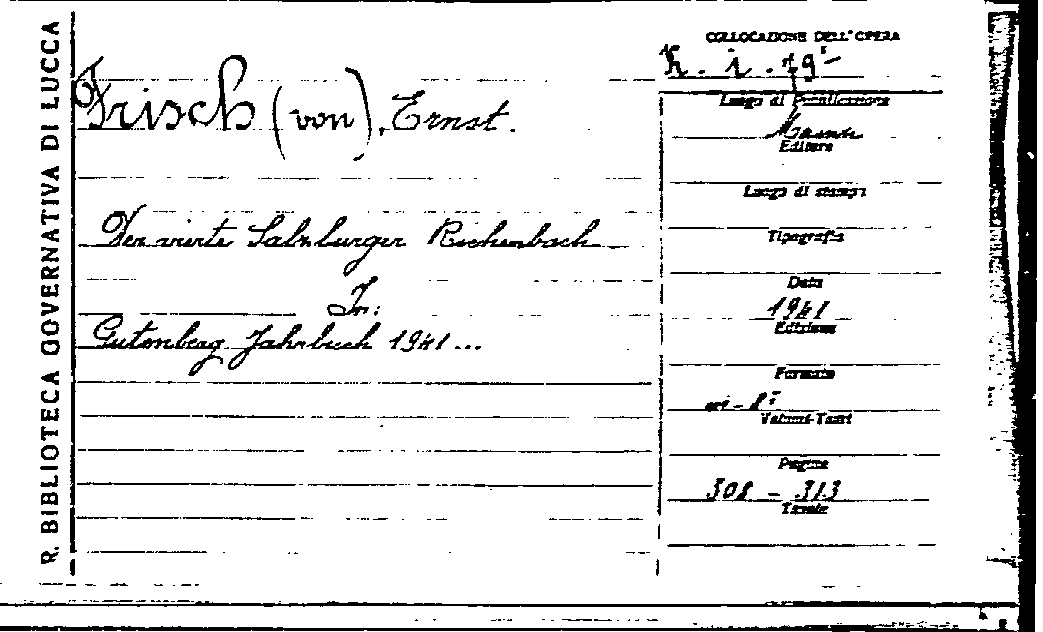 R. BIBLIOTECA GOVERNATIVA DI LUCCA
Frisch (von), Ernst.
Der vierte Salzburger Richenbach
In:
Gutenberg Jahrbuch 1941...
COLLOCAZIONE DELL'OPERA
K. i. 79
Luogo di Pubblicazione
Editore
Luogo di stampa
Tipografia
Data
1941
Edizione
Formato
in-8º
Volumi-Tomi
Pagine
308 - 313
Tavole